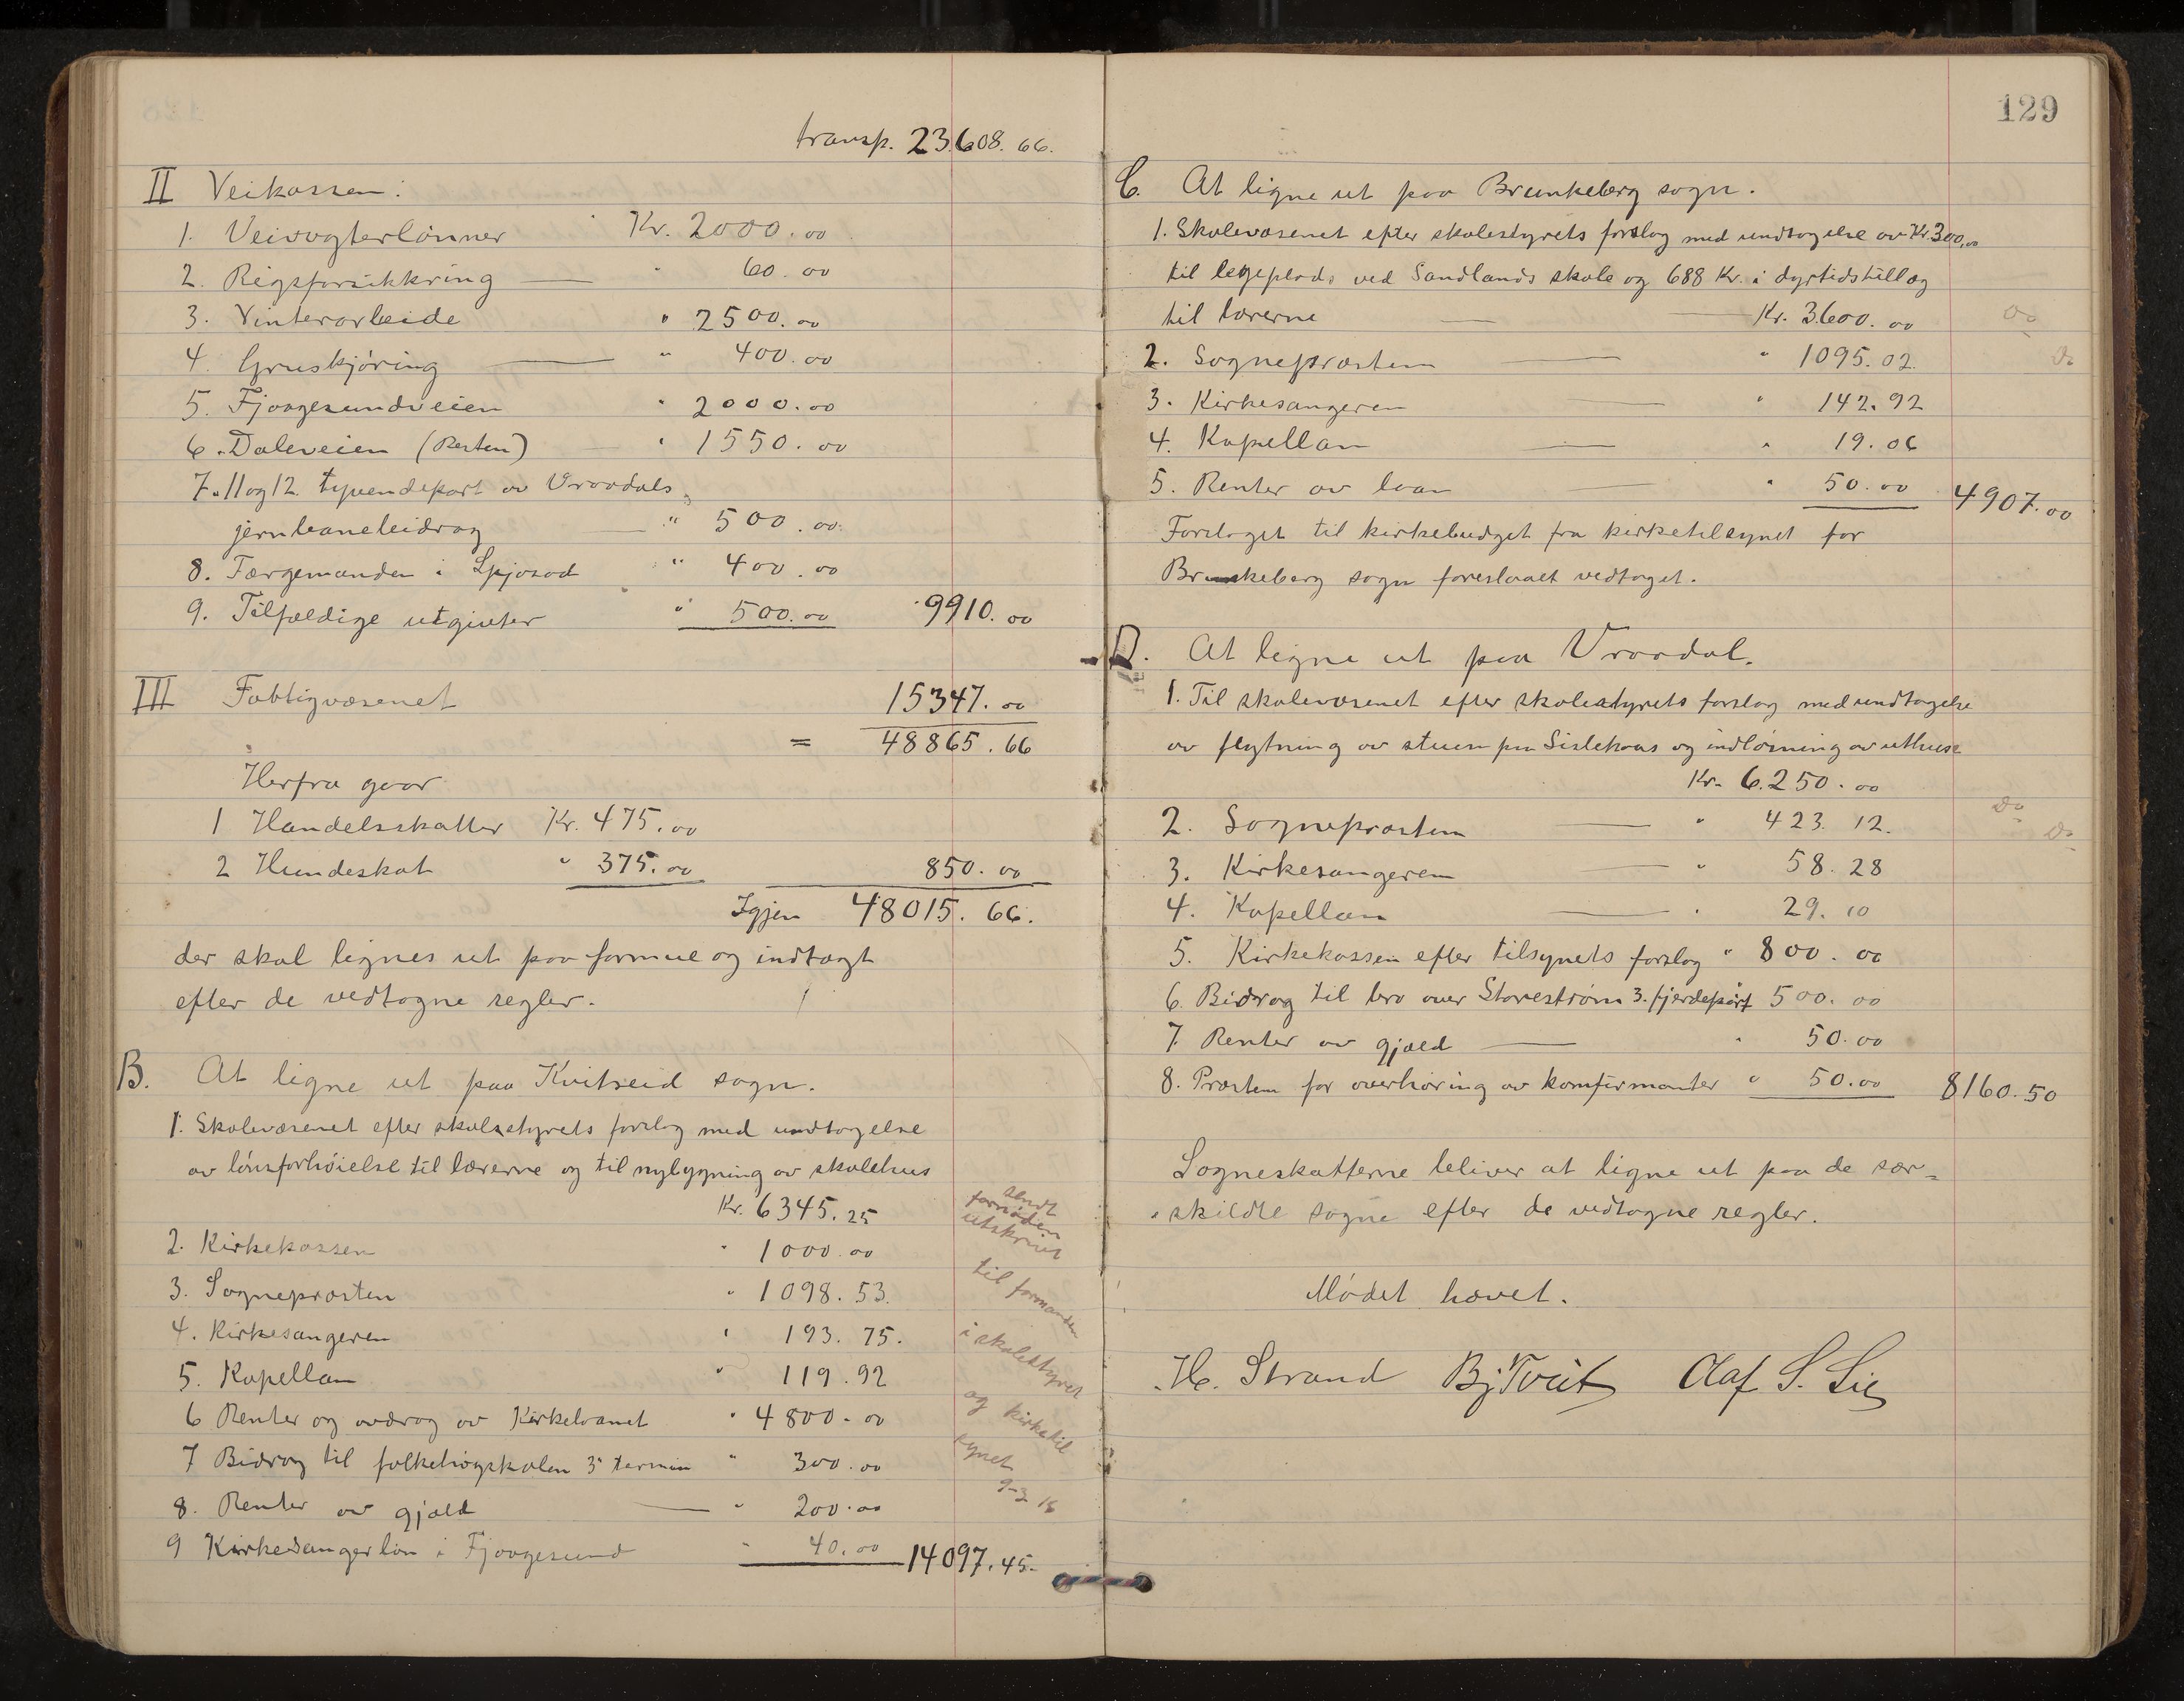 transp. 23.608.66.
II Veikassen:
1. Veivogterlönner Kr. 2000.00
2. Rigsforsikkring " 60.00
3. Vinterarbeide " 2500.00
4. Gruskjöring " 400.00
5. Fjaagesundveien " 2000.00
6. Daleveien (Resten) " 1550.00
7. 11 og 12. tyvendepart av Vraadals
jernbanebidrag " 500.00
8. Færgemanden i Spjosod " 400.00
9. Tilfældige utgivter " 500.00 9910.00
III Fattigvæsenet 15347.00
= 48865.66
Herfra gaar
1 Handelsskatter Kr. 475.00
2 Hundeskat " 375.00 850.00
Igjen 48015.66.
der skal lignes ut paa formue og indtægt
efter de vedtagne regler.
B. At ligne ut paa Kvitseid sogn.
1. Skolevæsenet efter skolestyrets forslag med undtagelse
av lönsforhöielse til lærerne og til nybygning av skolehus
Kr. 6345.25
2. Kirkekassen " 1000.00
3. Sognepræsten " 1098.53.
4. Kirkesangeren " 193.75.
5. Kapellan " 119.92
6 Renter og avdrag av Kirkelaanet " 4800.00
7 Bidrag til folkehögskolen 3 termin " 300.00
8. Renter av gjæld " 200.00
9 Kirkesangerløn i Fjaagesund " 40.00 14097.45.
sendt
fornöden
utskrivt
til formanden
i skolestyret
og kirketil
synet
9-3 16
129
C. At ligne ut paa Brunkeberg sogn.
1. Skolevæsenet efter skolestyrets forslag med undtagelse av Kr. 300,00
til legeplads ved Sandlands skole og 688 Kr. i dyrtidstillæg
til lærerne Kr. 3.600.00
2. Sognepræsten " 1095.02.
3. Kirkesangeren " 142.92
4. Kapellan " 19.06
5. Renter av laan " 50.00 4907.00
Forslaget til kirkebudget fra kirketilsynet for
Brunkeberg sogn foreslaaet vedtaget.
D. At ligne ut paa Vraadal.
1. Til skolevæsenet efter skolestyrets forslag med undtagelse
av flytning av stuen paa Sislehaas og indløsning av uthuse
Kr. 6.250.00
2. Sognepræsten " 423.12.
3. Kirkesangeren " 58.28
4. Kapellan " 29.10
5. Kirkekassen efter tilsynets forslag " 800.00
6. Bidrag til bro over Storestrøm 3. fjerdepart 500.00
7. Renter av gjæld " 50.00
8. Præsten for overhøring av komfirmanter " 50.00 8160.50
Sogneskatterne bliver at ligne ut paa de sær-
skildte sogne efter de vedtagne regler.
Mödet hævet.
H. Strand Bj. Tveit Olaf S. Lie